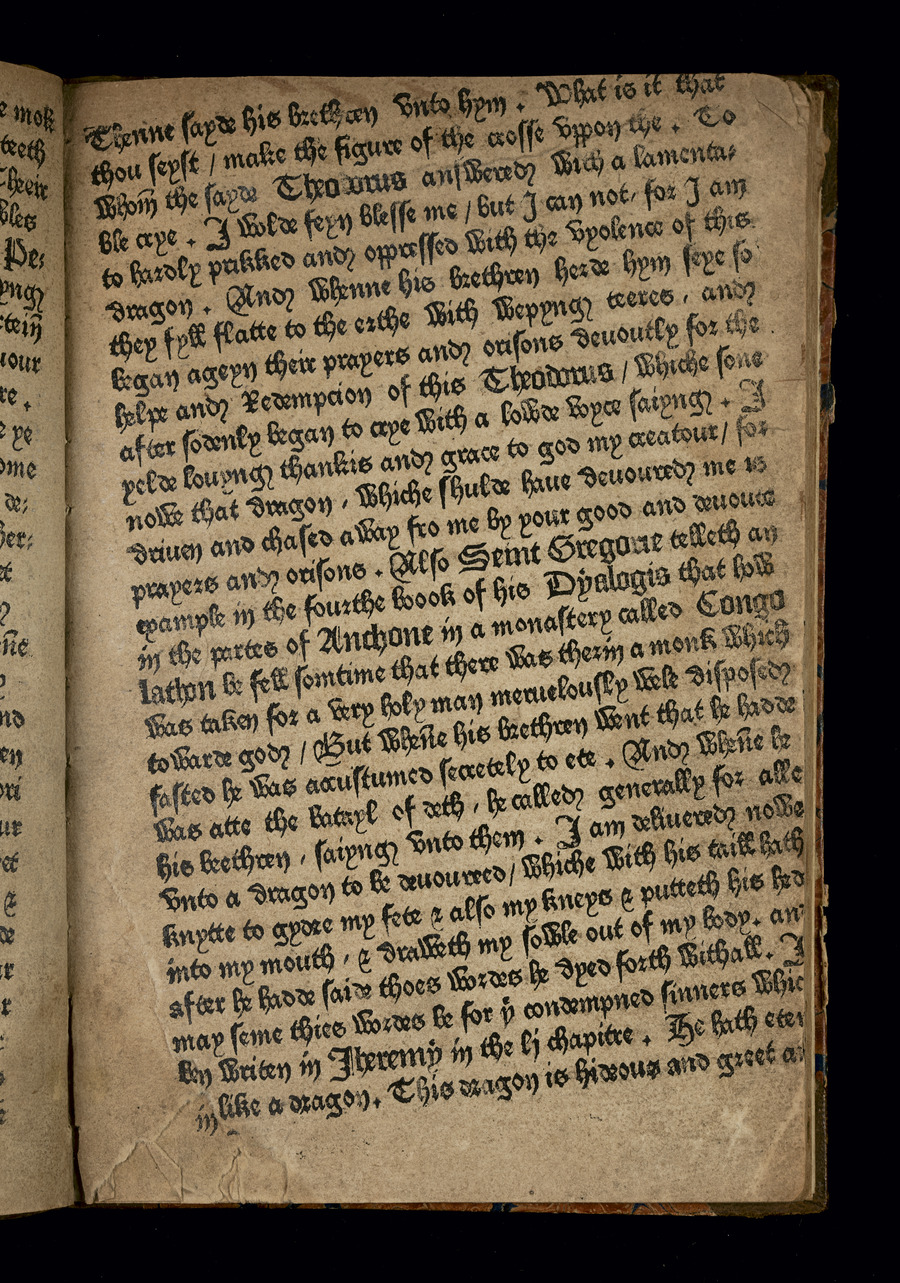 e mok
teeth
Theyr
bles
Pe:
yng
tein̄
uour
re .
ye
ome
de:
Ber:
et
n̄e
nd
en
ori
ur
et
&
de
Thenne sayde his brethren vnto hym . What is it that
thou seyst / make the figure of the crosse vppon the . To
whom̄ the sayde Theodorus answered with a lamenta:
ble crye . I wolde feyn blesse me / but I can not, for I am
to hardly prikked and oppressed with the vyolence of this
dragon . And whenne his brethren herde hym seye so
they fyll flatte to the erthe with wepyng teeres , and
began ageyn their prayers and orisons deuoutly for the
helpe and Redempcion of this Theodorus / whiche sone
after sodenly began to crye with a lowde voyce saiyng . I
yelde louyng thankis and grace to god my creatour / for
nowe that dragon , whiche shulde haue deuoured me is
driuen and chased away fro me by your good and deuoute
prayers and orisons . Also Seint Gregorie telleth an
example in the fourthe boook of his Dyalogis that how
in the partes of Anchone in a monastery called Congo
lathon be fell somtime that there was therin a monk which
was taken for a very holy man meruelously wele disposed
towarde god / But when̄e his brethren went that he hadde
fasted he was acustumed secretely to ete . And when̄e he
was atte the batayl of deth , he called generally for alle
his brethren , saiyng vnto them . I am deliuered nowe
vnto a dragon to be deuoured / whiche with his taill hath
knytte to gydre my fete & also my kneys & putteth his hed
into my mouth , & draweth my sowle out of my body . an
after he hadde saide thoes wordes he dyed forth withall . I
may seme thies wordes be for ẏ condempned sinners whic
ben writen in Jheremy in the lj chapitre . He hath eten
in like a dragon . This dragon is hidous and greet an